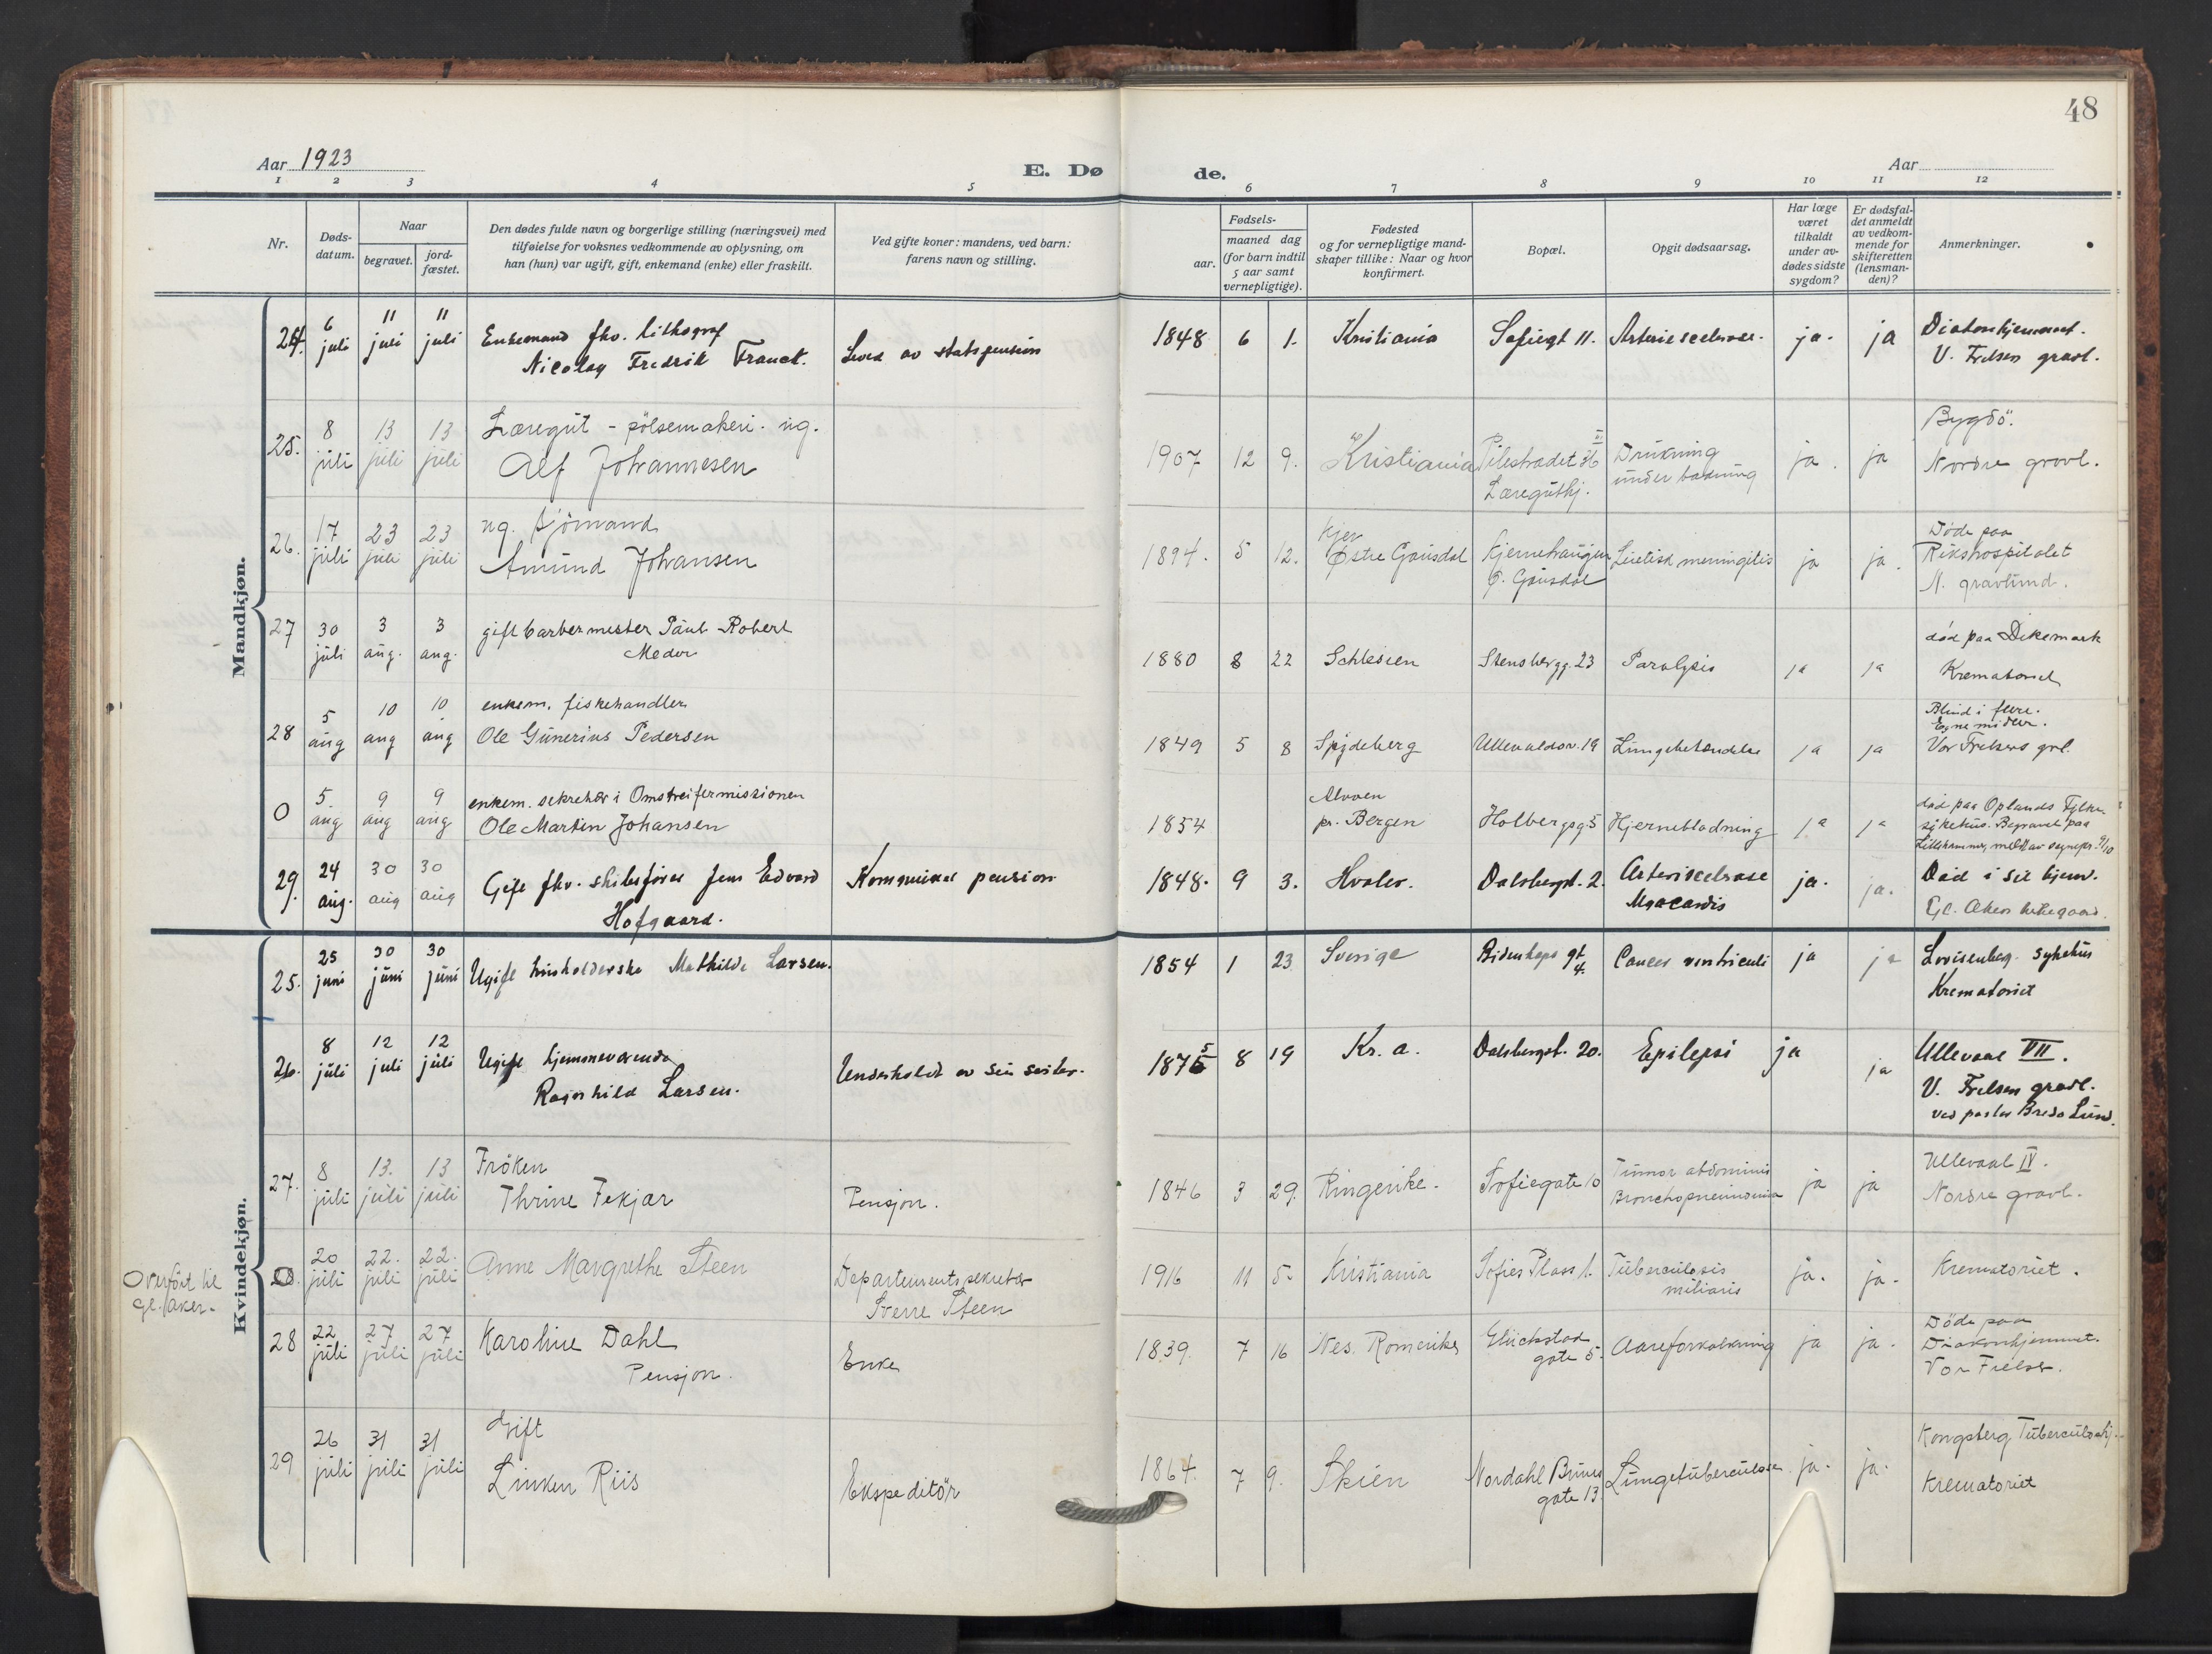 48
Aar 1923
E. Dø
de.
Aar
1 2 3 4 5 6 7 8 9 10 11 12
Nr.
Døds-
datum.
Naar
begravet.
jord-
fæstet.
Den dødes fulde navn og borgerlige stilling (næringsvei) med
tilføielse for voksnes vedkommende av oplysning, om
han (hun) var ugift, gift, enkemand (enke) eller fraskilt.
Ved gifte koner: mandens, ved barn:
farens navn og stilling.
aar.
Fødsels-
maaned dag
(for barn indtil
5 aar samt
vernepligtige).
Fødested
og for vernepligtige mand-
skaper tillike: Naar og hvor
konfirmert.
Bopæl.
Opgit dødsaarsag.
Har læge
været
tilkaldt
under av-
dødes sidste
sygdom?
Er dødsfal-
det anmeldt
av vedkom-
mende for
skifteretten
(lensman-
den)?
Anmerkninger.
Mandkjøn.
24. 6 juli 11 juli 11 juli Enkemand fhv. lithograf
Nicolay Fredrik Franck. Leved av statspension
1848 6 1. Kristiania Sofiegt 11. Arteriesclerose. ja. ja Diakonhjemmet.
V. Frelsers gravl.
25. 8 juli 13 juli 13 juli Læregut - pölsemakeri. ug.
Alf Johannesen
1907 12 9. Kristiania Pilestrædet 36 VI
Læreguthj. Drukning
under badning ja. ja Bygdö.
Nordre gravl.
26. 17 juli 23 juli 23 juli ug. sjömand
Amund Johansen
1894. 5 12. Østre Gausdal Kjernehaugen
Ö. Gausdal Luetisk meningitis ja ja. Döde paa
Rikshospitalet
N. gravlund.
27 30 juli 3 aug. 3 aug. gift barbermester Paul Robert
Meder
1880 8 22 Schlesien Stensbergg. 23 Paralysis ja ja död paa Dikemark
Krematoriet
28 5 aug 10 aug 10 aug enkem. fiskehandler
Ole Gunerius Pedersen
1849 5 8 Spydeberg Ullevaldsv. 19 Lungebetændelse ja ja Blind i flere.
Egne midler.
Vor Frelsers grl.
0 5. aug 9 aug 9 aug enkem. sekretær i Omstreifermissionen
Ole Martin Johansen
1854 Alvøen
pr. Bergen Holbergsg. 5 Hjerneblødning ja ja död paa Oplands Fylkes
sykehus. Begravet paa
Lillehammer, meldt av sognepr. 9/10
29. 24 aug. 30 aug 30 aug Gift fhv. skibsförer Jens Edvard
Hofgaard. Kommunal pension
1848. 9 3. Hvaler. Dalsbergst. 2. Arteriosclerose
Myocardis ja. ja. Död i sit hjem.
Gl. Aker kirkegaard.
Kvindekjøn.
25. 25 juni 30 juni 30 juni Ugift husholderske Mathilde Larsen.
1854 1 23 Sverige Bidenkaps gt
4. Cancer ventriculi ja ja Lovisenberg sykehus
Krematoriet
26. 8 juli 12 juli 12 juli Ugift hjemmeværende
Ragnhild Larsen. Underholdt av sin søster.
1875 8 19 Kr. a. Dalsbergst. 20. Epilepsi ja ja Ullevaal VII.
V. Frelsers gravl.
ved pastor Bredo Lund.
27. 8 juli 13. juli 13 juli Fröken
Thrine Fekjær Pensjon.
1846 3 29. Ringerike. Sofiegate 10 Tumor abdominis
Bronchopneumonia ja ja Ullevaal IV.
Nordre gravl.
Overfört til
gl. Aker.
0. 20 juli 22. juli 22. juli Anne Margrethe Steen Departementssekretær
Sverre Steen
1916 11 5. Kristiania Sofies Plass 1. Tuberculosis
miliaris ja. ja. Krematoriet.
28 22 juli 27 juli 27 juli Karoline Dahl
Pensjon. Enke
1839. 7 16 Nes. Romerike Glückstad
gate 5. Aareforkalkning ja ja. Döde paa
Diakonhjemmet.
Vor Frelser.
29 26 juli 31 juli 31 juli Gift
Linken Riis Ekspeditör
1864. 7 9. Skien Nordahl Bruns
gate 13. Lungetuberculose ja. ja. Kongsberg Tuberculosehj.
Krematoriet